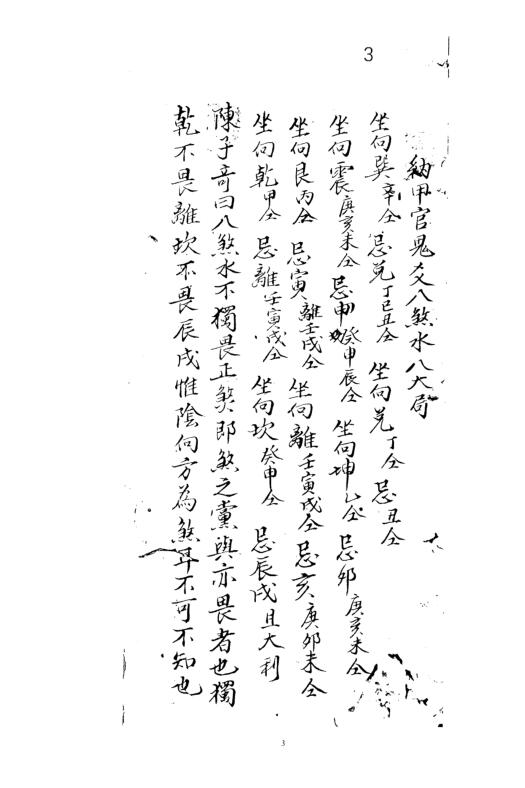 3
納甲官鬼爻八煞水八大局
坐向巽辛仝忌兌丁巳丑仝 坐向兌丁仝 忌丑仝
坐向震庚亥未仝 忌申癸申辰仝 坐向坤乙仝 忌卯庚亥未仝
坐向艮丙仝 忌寅離壬戌仝 坐向離壬寅戌仝 忌亥庚卯未仝
坐向乾甲仝 忌離壬寅戌仝 坐向坎癸申仝 忌辰戌且大利
陳子竒曰八煞水不獨畏正煞即煞之黨與亦畏者也獨
乾不畏離坎不畏辰戌惟陰向方為煞耳不可不知也
3